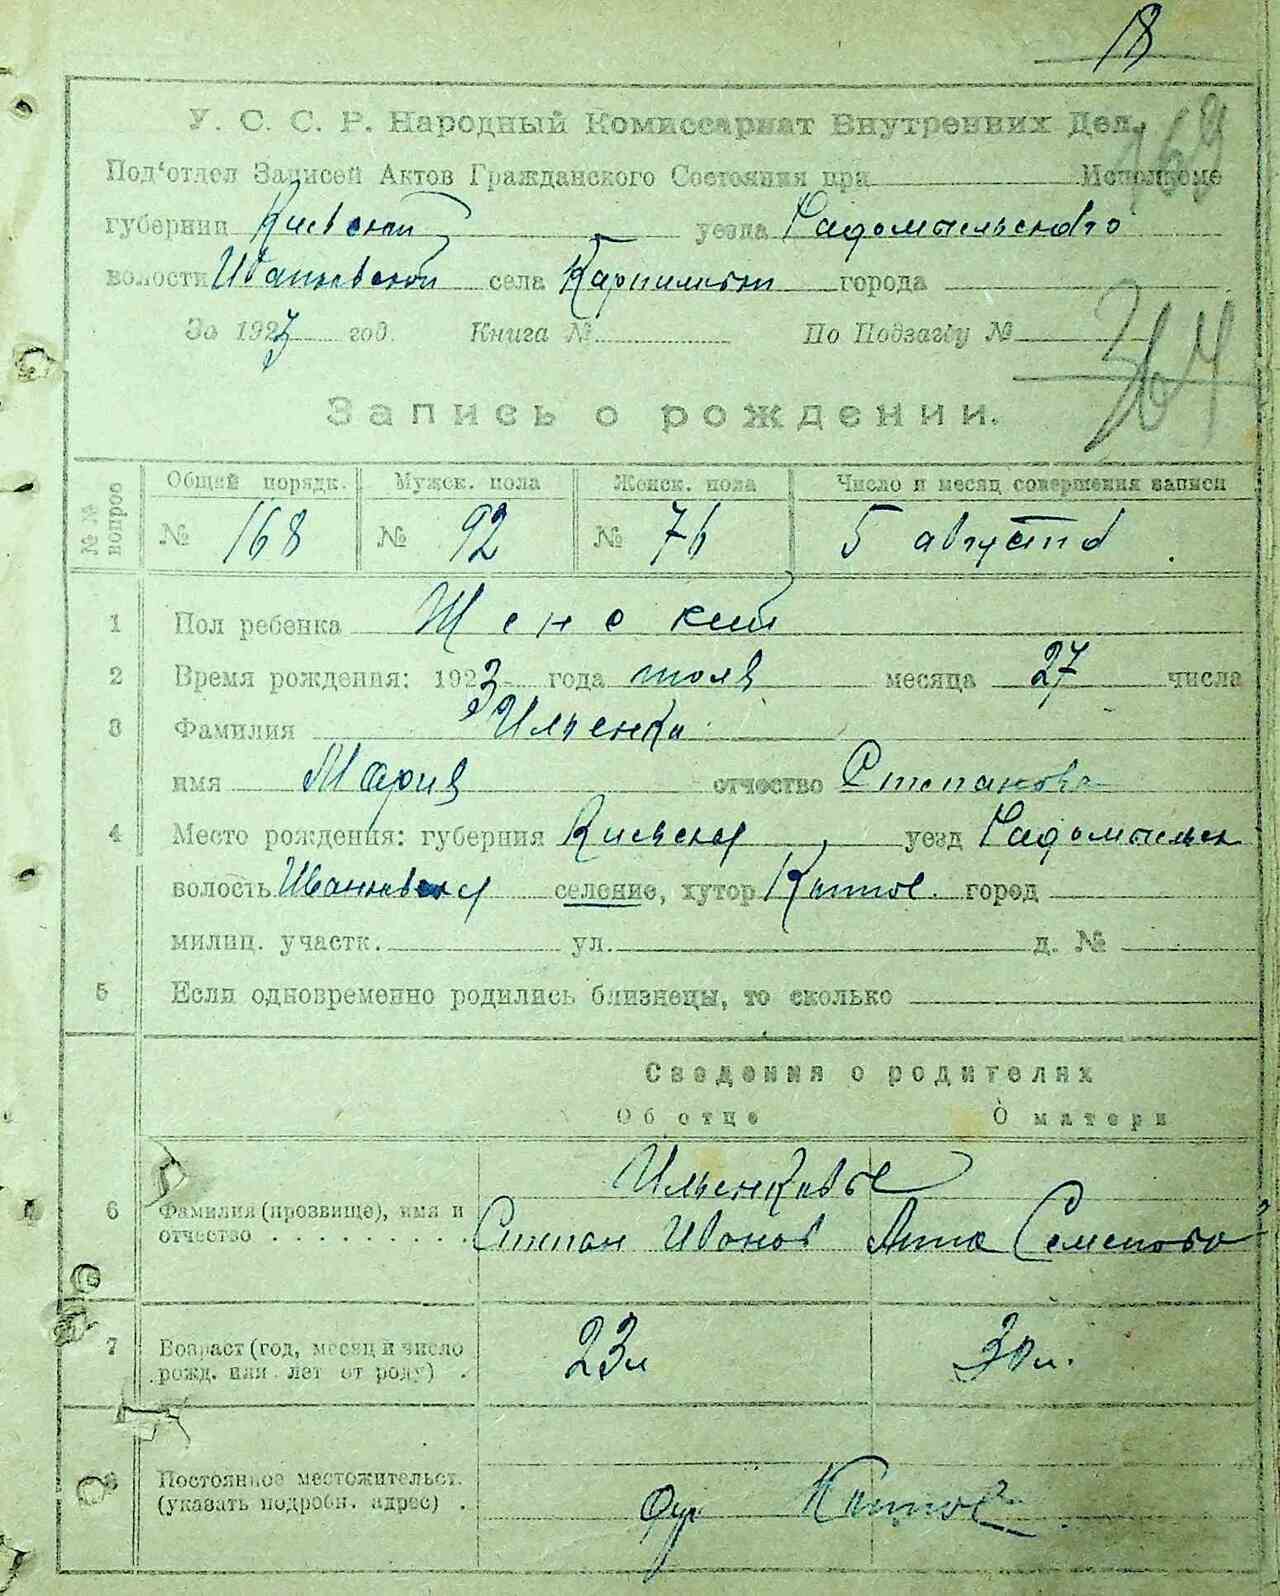 18
169
У. С. С. Р. Народный Комиссариат Внутренних Дел.
Под'отдел Записей Актов Гражданского Состояния при Исполкоме
губернии Киевской уезда Радомысльского
волости Иванковской села города
За 1923 год. Книга № По Подзагсу №
364
Запись о рождении.
№ № вопрос
Общий порядк. Мужск. пола Женск. пола Число и месяц совершения записи
№ 168 № 92 № 76 5 августа
1 Пол ребенка Женский
2 Время рождения: 1923 года июля месяца 27 числа
3 Фамилия Ильенко
имя Мария отчество Степанова
4 Место рождения: губерния Киевская уезд Радомысльск
волость Иванковская селение, хутор город
милиц. участк. ул. д. №
5 Если одновременно родились близнецы, то сколько
Сведения о родителях
Об отце О матери
Ильенковы
6 Фамилия (прозвище), имя и
отчество . . . . . . . . . Степан Иванов Анна Семенова
7 Возраст (год, месяц и число
рожд. или лет от роду) . 23 л 30 л.
8 Постоянное местожительст.
(указать подробн. адрес) .